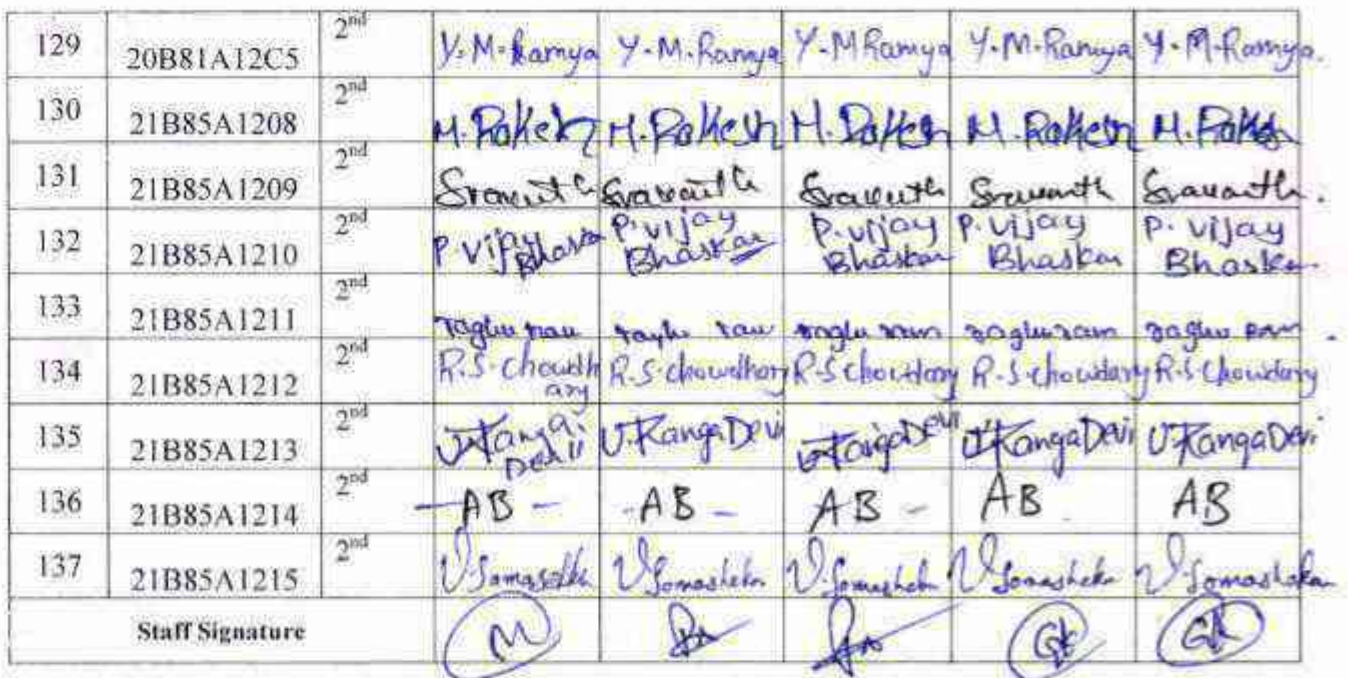 129 20B81A12C5 2nd Y.M.Ramya Y.M.Ramya Y.M Ramya Y.M.Ramya Y.M.Ramya.
130 21B85A1208 2nd M.Rakesh M.Rakesh M.Rakesh M.Rakesh M.Rakesh
131 21B85A1209 2nd Sravanth Sravanth Sravanth Sravanth Sravanth.
132 21B85A1210 2nd P.Vijay Bhaskar P.Vijay Bhaskar P.Vijay Bhaskar P.Vijay Bhaskar P.Vijay Bhaskar
133 21B85A1211 2nd raghu ram raghu ram raghu ram raghuram raghu ram
134 21B85A1212 2nd R.S.Choudhary R.S.Chowdhary R.S Chowdary R.S.Chowdary R.S Chowdary
135 21B85A1213 2nd U.Ranga Devi U.RangaDevi U.RangaDevi U.RangaDevi U.RangaDevi
136 21B85A1214 2nd -AB- -AB- AB- AB AB
137 21B85A1215 2nd V.Somashekar V.Somashekar V.Somashekar V.Somashekar V.Somashekar
Staff Signature M GK GK